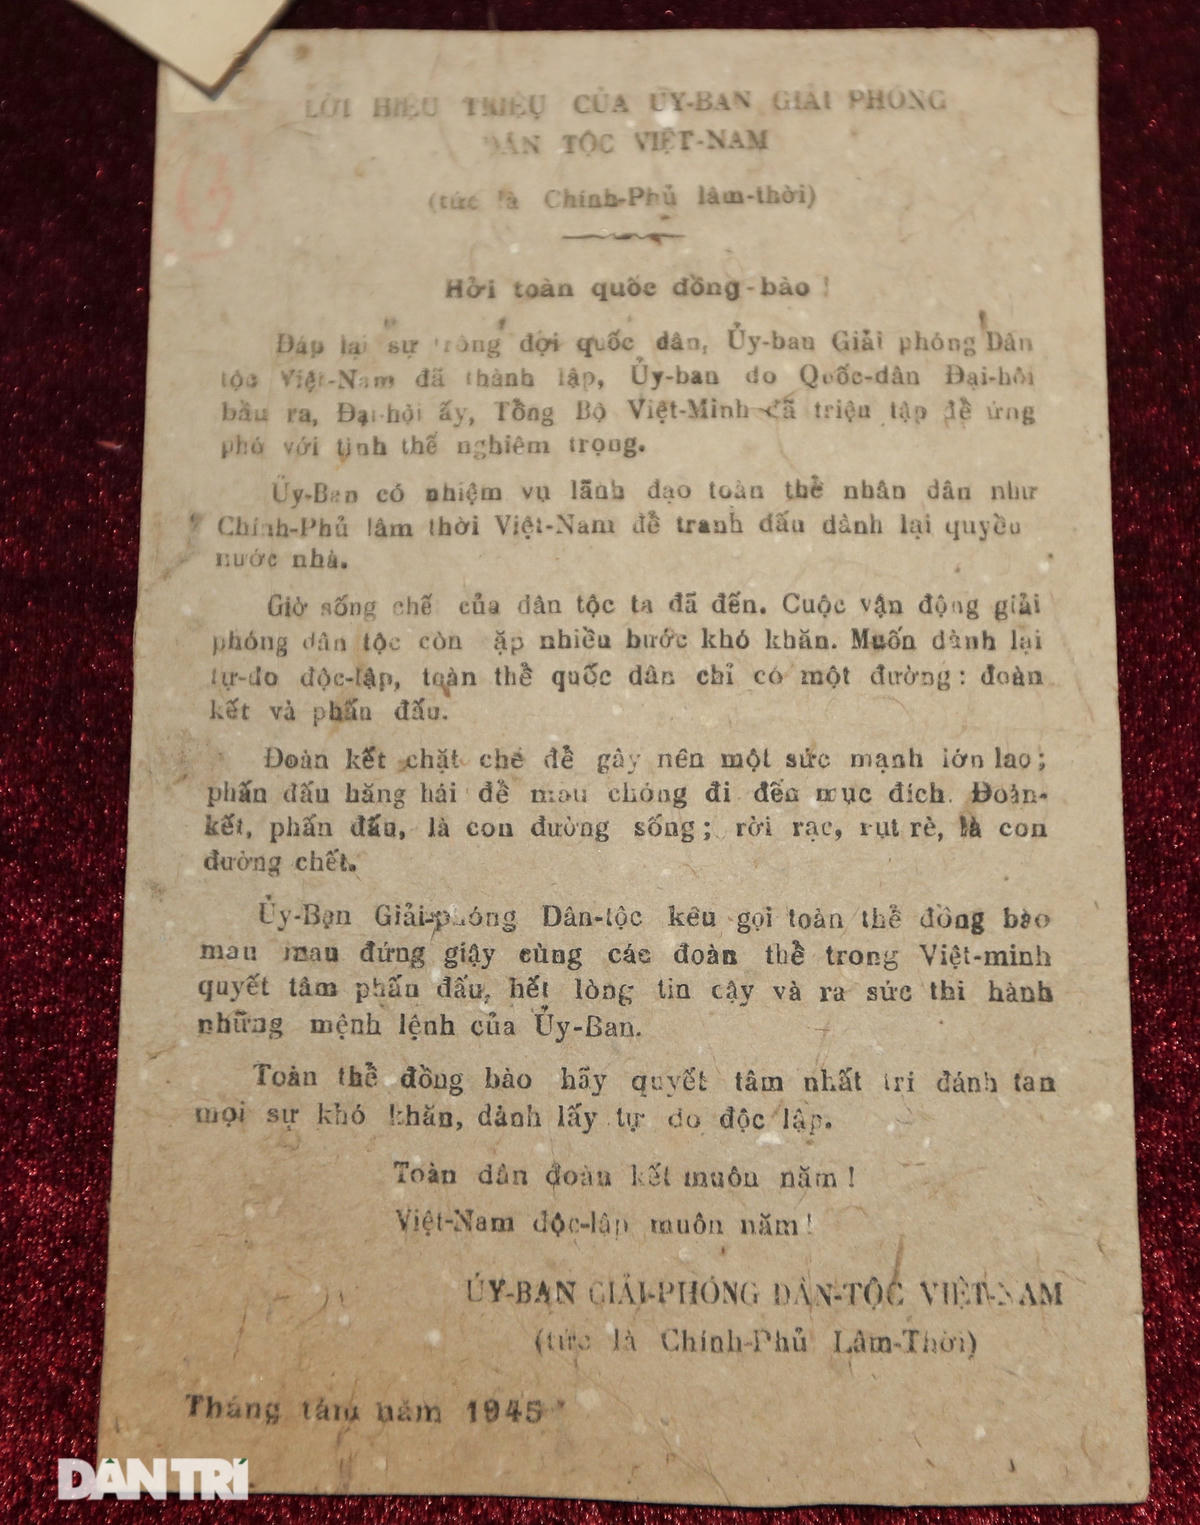 LỜI HIỆU TRIỆU CỦA ỦY-BAN GIẢI PHÓNG
DÂN TỘC VIỆT-NAM
(tức là Chính-Phủ lâm-thời)
Hỡi toàn quốc đồng-bào !
Đáp lại sự trông đợi quốc dân, Ủy-ban Giải phóng Dân
tộc Việt-Nam đã thành lập, Ủy-ban do Quốc-dân Đại-hôi
bầu ra, Đại-hội ấy, Tổng Bộ Việt-Minh đã triệu tập để ứng
phó với tình thế nghiêm trọng.
Ủy-Ban có nhiệm vụ lãnh đạo toàn thể nhân dân như
Chính-Phủ lâm thời Việt-Nam để tranh đấu dành lại quyền
nước nhà.
Giờ sống chế của dân tộc ta đã đến. Cuộc vận động giải
phóng dân tộc còn ặp nhiều bước khó khăn. Muốn dành lại
tự-do độc-lập, toàn thể quốc dân chỉ có một đường : đoàn
kết và phấn đấu.
Đoàn kết chặt chẽ để gây nên một sức mạnh lớn lao ;
phấn đấu hăng hái để mau chóng đi đến mục đích. Đoàn-
kết, phấn đấu, là con đường sống ; rời rạc, rụt rè, là con
đường chết.
Ủy-Ban Giải-phóng Dân-tộc kêu gọi toàn thể đồng bào
mau mau đứng giậy cùng các đoàn thể trong Việt-minh
quyết tâm phấn đấu, hết lòng tin cậy và ra sức thi hành
những mệnh lệnh của Ủy-Ban.
Toàn thể đồng bào hãy quyết tâm nhất trí đánh tan
mọi sự khó khăn, dành lấy tự do độc lập.
Toàn dân đoàn kết muôn năm !
Việt-Nam độc-lập muôn năm !
ỦY-BAN GIẢI-PHÓNG DÂN-TỘC VIỆT-NAM
(tức là Chính-Phủ Lâm-Thời)
Tháng tám năm 1945
DÂN TRÍ